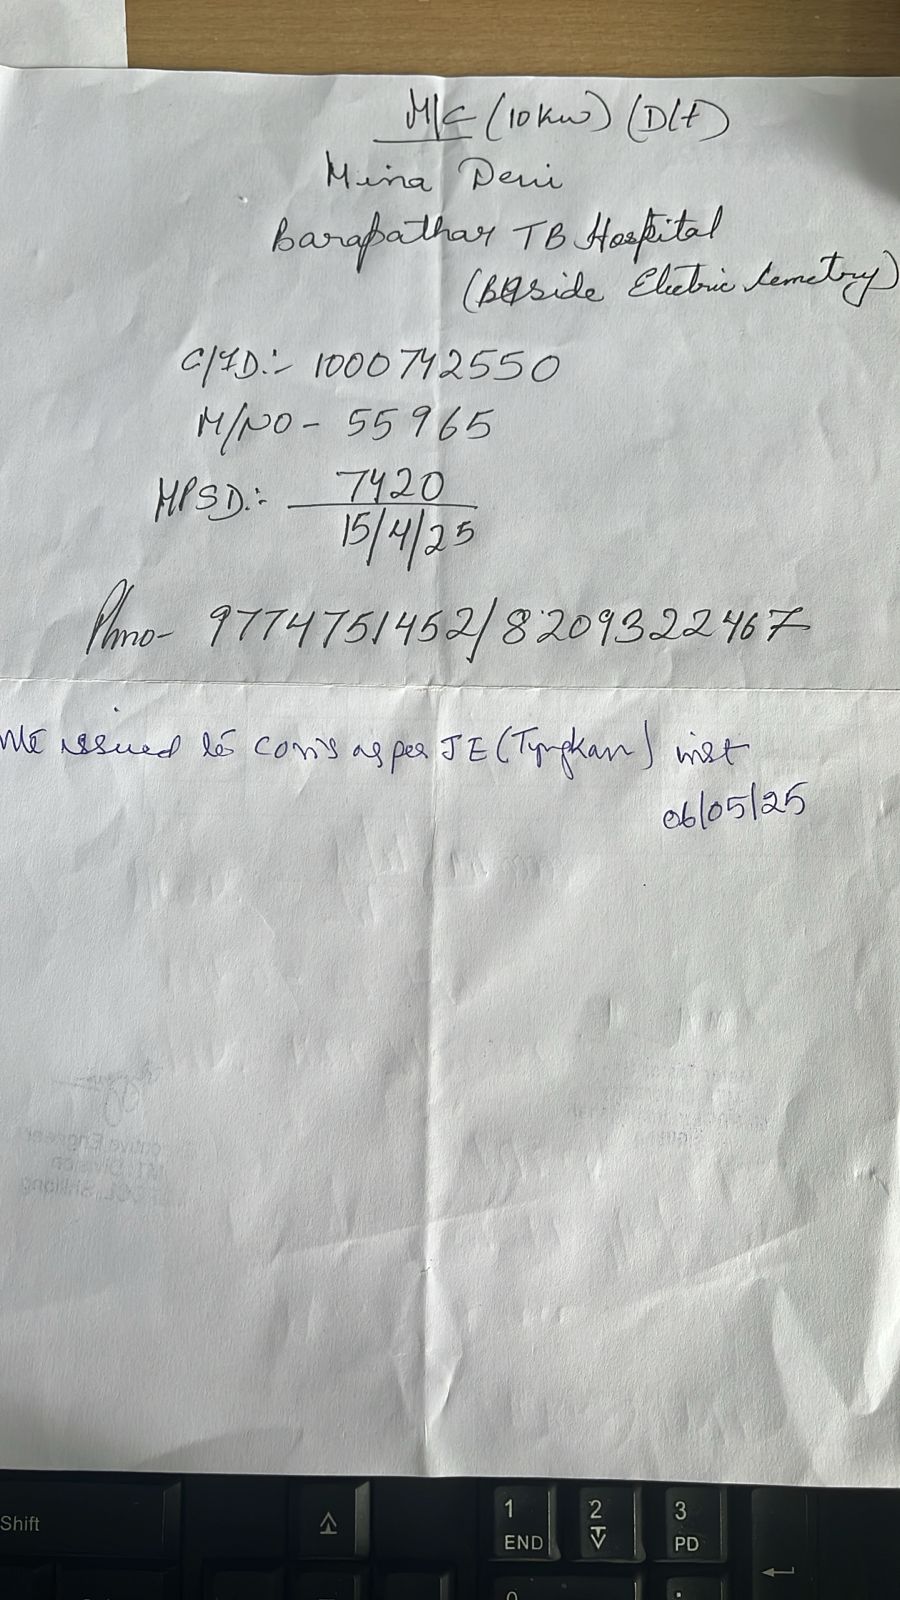 M/C (10 kw) (D/F)
Mina Devi
Barapathar TB Hospital
(Beside Electric Cemetry)
C/ID:- 1000742550
M/NO - 55965
MPSD:- 7420
15/4/25
Phno- 9774751452/8209322467
issued to cons as per JE (Tyngkan) inst
06/05/25
Engineer
Division
Shillong
Shift
1
END
2
3
PD
0
.